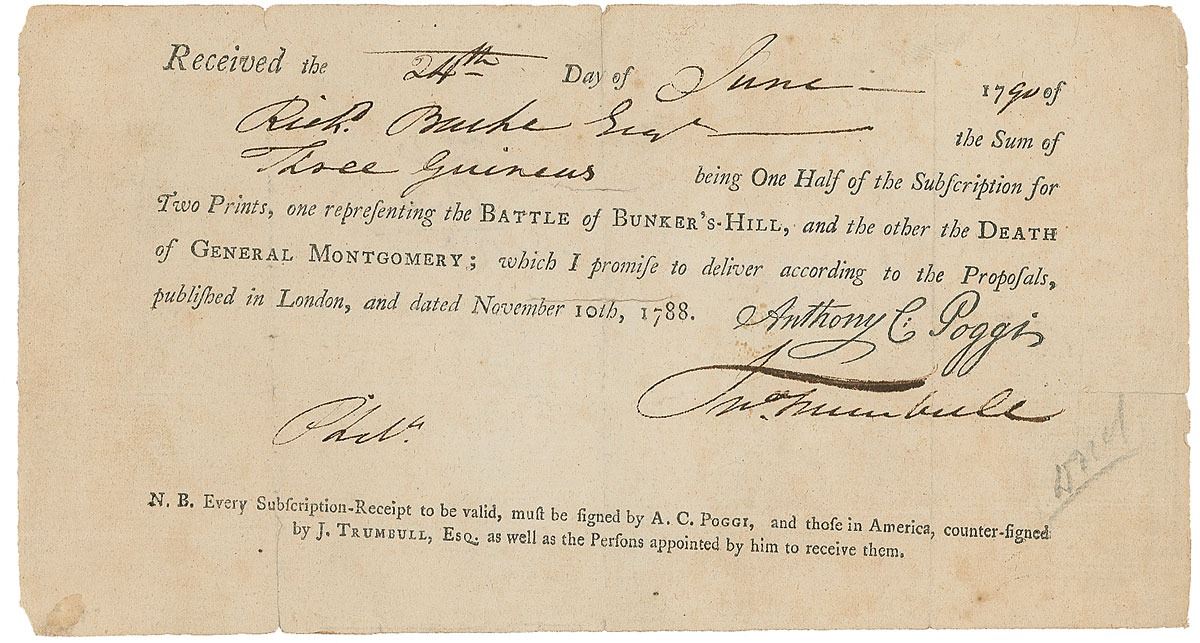 Received the 24th Day of June 1790 of
Richd. Bache Esqr the Sum of
Three Guineas being One Half of the Subſcription for
Two Prints, one repreſenting the BATTLE of BUNKER'S-HILL, and the other the DEATH
of GENERAL MONTGOMERY; which I promiſe to deliver according to the Propoſals,
publiſhed in London, and dated November 10th, 1788. Anthony C: Poggi
Jno. Trumbull
N. B. Every Subſcription-Receipt to be valid, muſt be ſigned by A. C. POGGI, and thoſe in America, counter-ſigned
by J. TRUMBULL, ESQ. as well as the Perſons appointed by him to receive them.